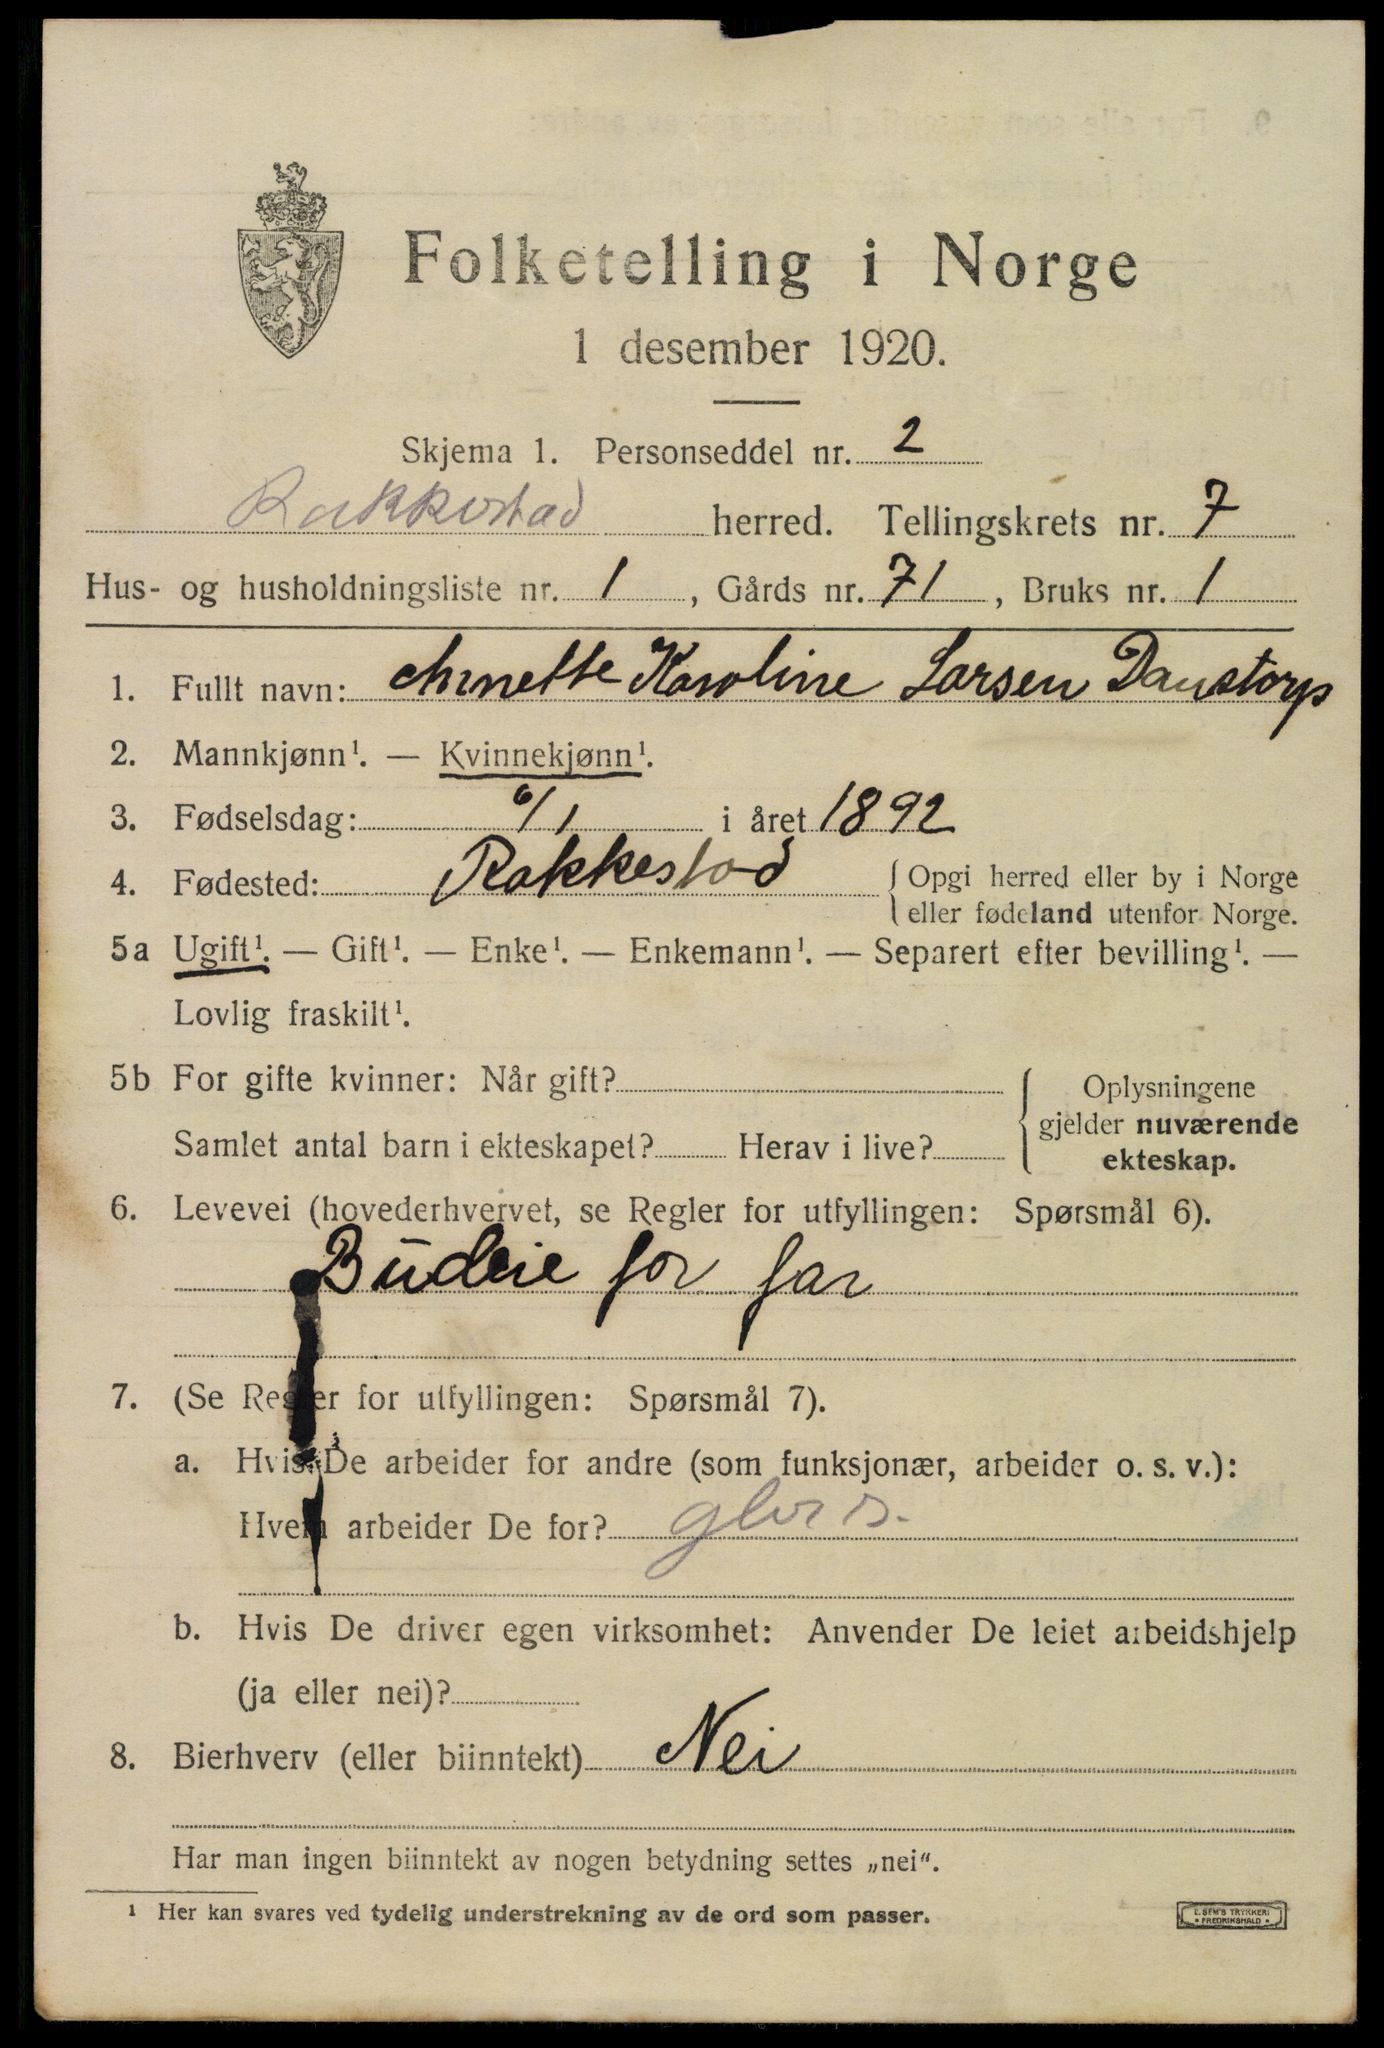 Folketelling i Norge
1 desember 1920.
Skjema 1. Personseddel nr. 2
Rakkestad herred. Tellingskrets nr. 7
Hus- og husholdningsliste nr. 1, Gårds nr. 71, Bruks nr. 1
1. Fullt navn: Annette Karoline Larsen Danstorp
2. Mannkjønn¹. — Kvinnekjønn¹.
3. Fødselsdag: 6/1 i året 1892
4. Fødested: Rakkestad { Opgi herred eller by i Norge
eller fødeland utenfor Norge.
5a Ugift¹. — Gift¹. — Enke¹. — Enkemann¹. — Separert efter bevilling¹. —
Lovlig fraskilt¹.
5b For gifte kvinner: Når gift? { Oplysningene
gjelder nuværende
Samlet antal barn i ekteskapet? Herav i live?
ekteskap.
6. Levevei (hovederhvervet, se Regler for utfyllingen: Spørsmål 6).
Budeie for far
7. (Se Regler for utfyllingen: Spørsmål 7).
a. Hvis De arbeider for andre (som funksjonær, arbeider o. s. v.):
Hvem arbeider De for?
b. Hvis De driver egen virksomhet: Anvender De leiet arbeidshjelp
(ja eller nei)?
8. Bierhverv (eller biinntekt) Nei
Har man ingen biinntekt av nogen betydning settes „nei“.
¹ Her kan svares ved tydelig understrekning av de ord som passer.
E. SEM'S TRYKKERI
FREDRIKSHALD